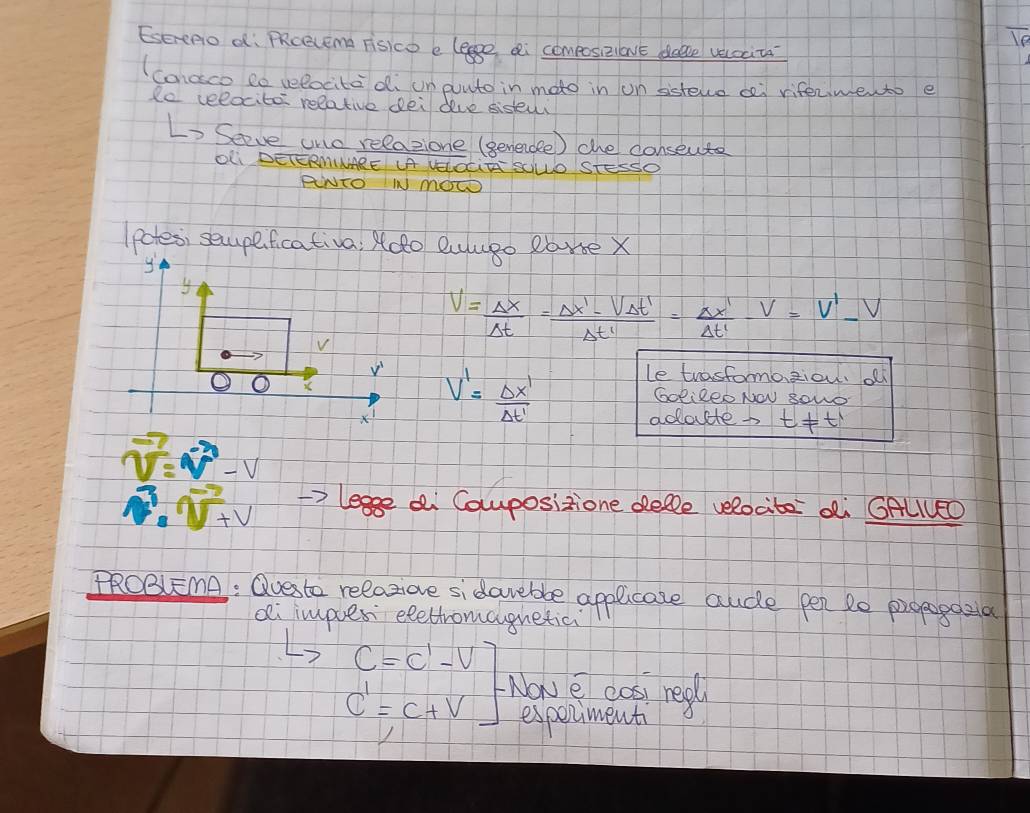 Esempio di Problema Fisico e legge di composizione delle velocità
(Conosco la velocità di un punto in moto in un sistema di riferimento e
la velocità relativa dei due sistemi
↳ Serve una relazione (generale) che consente
di DETERMINARE LA VELOCITÀ SULLO STESSO
PUNTO IN MOTO
Ipotesi semplificativa: Moto lungo l'asse X
y'
y
V
x
V'
x'
V = Δx/Δt = Δx' - VΔt'/Δt' = Δx'/Δt' - V = V' - V
V' = Δx'/Δt'
Le trasformazioni di
Galileo NON sono
adatte → t ≠ t'
V = V' - V
V' = V + V → legge di Composizione delle velocità di GALILEO
PROBLEMA: Questa relazione si dovrebbe applicare anche per la
di impulsi elettromagnetici
↳ C = C' - V
C' = C + V
NON è così negli
esperimenti